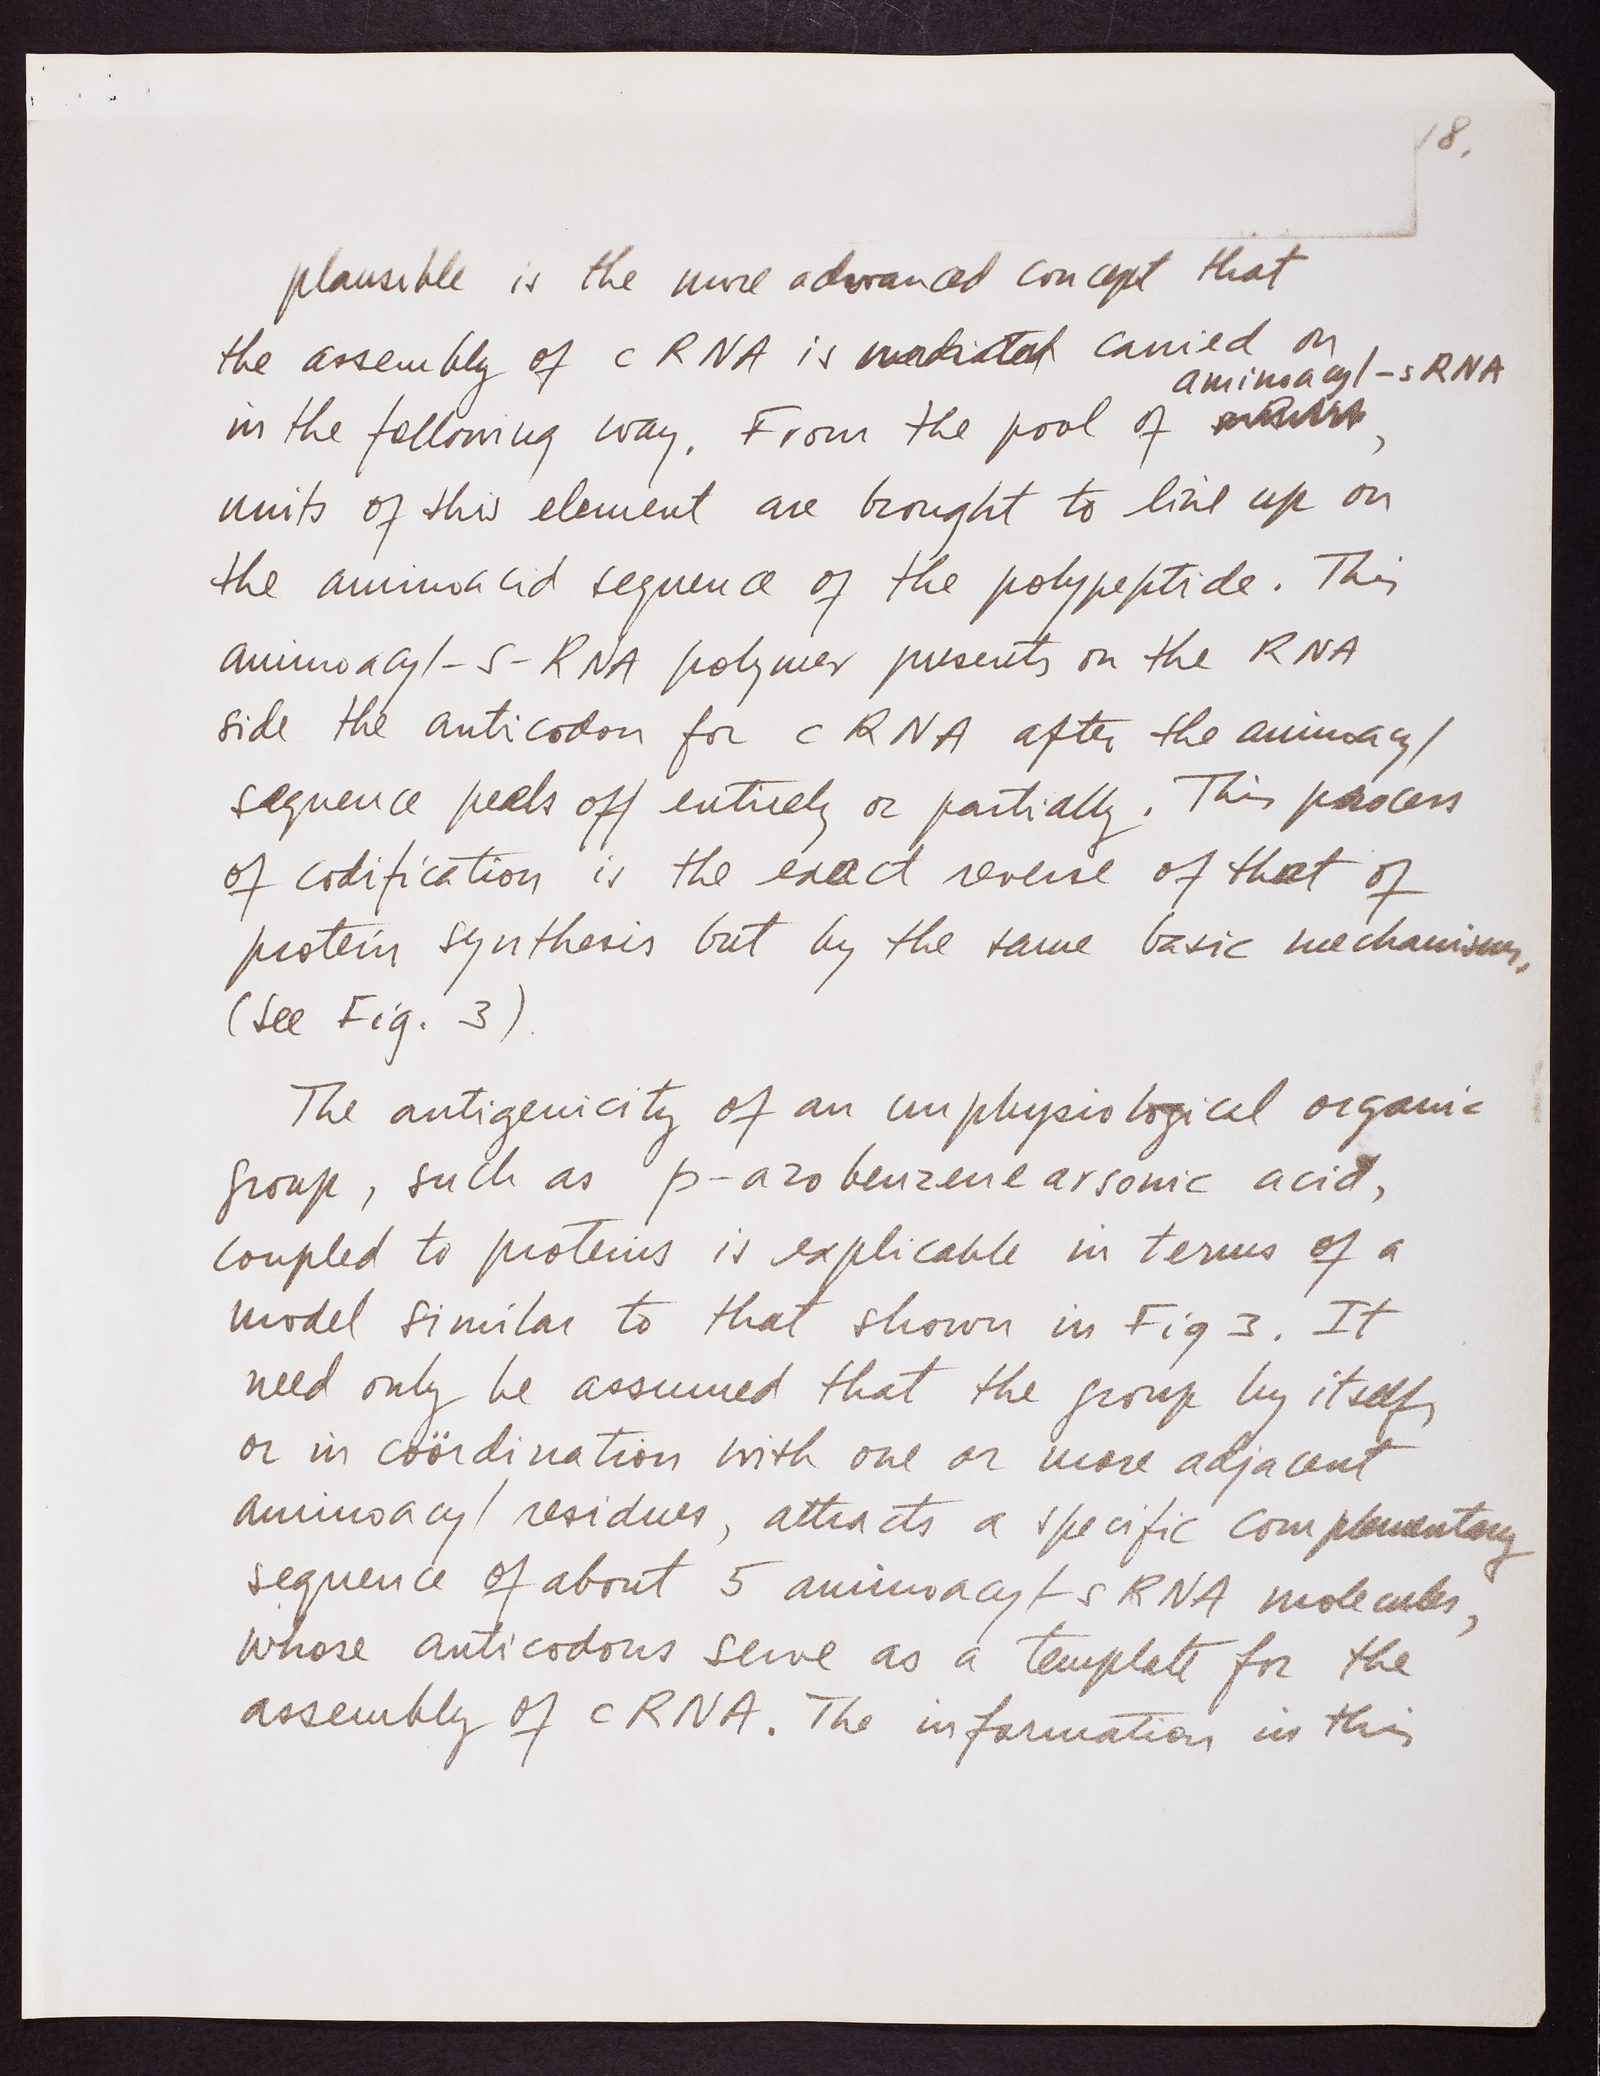 18.
plausible is the more advanced concept that
the assembly of cRNA is mediated carried on
aminoacyl-sRNA
in the following way. From the pool of ,
units of this element are brought to line up on
the aminoacid sequence of the polypeptide. This
aminoacyl-s-RNA polymer presents on the RNA
side the anticodon for cRNA after the aminoacyl
sequence peels off entirely or partially. This process
of codification is the exact reverse of that of
protein synthesis but by the same basic mechanisms.
(See Fig. 3).
The antigenicity of an unphysiological organic
group, such as p-azobenzenearsonic acid,
coupled to proteins is explicable in terms of a
model similar to that shown in Fig 3. It
need only be assumed that the group by itself,
or in coördination with one or more adjacent
aminoacyl residues, attracts a specific complementary
sequence of about 5 aminoacyl-sRNA molecules,
whose anticodons serve as a template for the
assembly of cRNA. The information in this